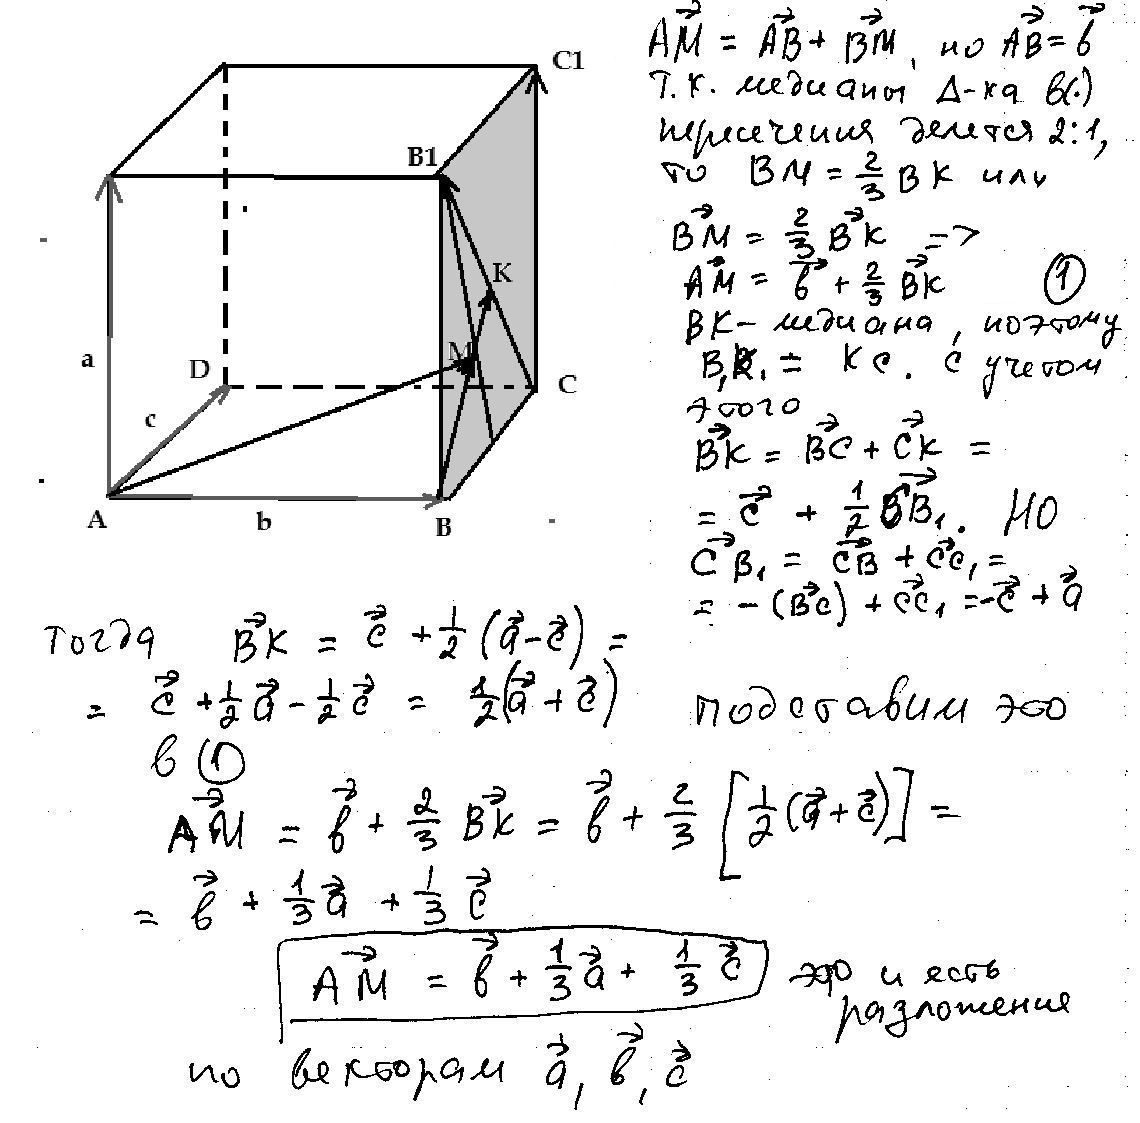 C1
B1
K
M
a
D
C
c
A
b
B
AM⃗ = AB⃗ + BM⃗, но AB⃗ = b⃗
Т.к. медианы Δ-ка в(·)
пересечения делется 2:1,
то BM = 2/3 BK или
BM⃗ = 2/3 BK⃗ =>
AM⃗ = b⃗ + 2/3 BK⃗ ①
BK - медиана, поэтому
= KC. С учетом
этого
BK⃗ = BC⃗ + CK⃗ =
= c⃗ + 1/2 CB₁⃗. НО
CB₁⃗ = CB⃗ + CC₁⃗ =
= -(BC⃗) + CC₁⃗ = -c⃗ + a⃗
Тогда BK⃗ = c⃗ + 1/2 (a⃗ - c⃗) =
= c⃗ + 1/2 a⃗ - 1/2 c⃗ = 1/2 (a⃗ + c⃗) подставим это
в ①
AM⃗ = b⃗ + 2/3 BK⃗ = b⃗ + 2/3 [1/2 (a⃗ + c⃗)] =
= b⃗ + 1/3 a⃗ + 1/3 c⃗
AM⃗ = b⃗ + 1/3 a⃗ + 1/3 c⃗ это и есть
разложение
по векторам a⃗, b⃗, c⃗